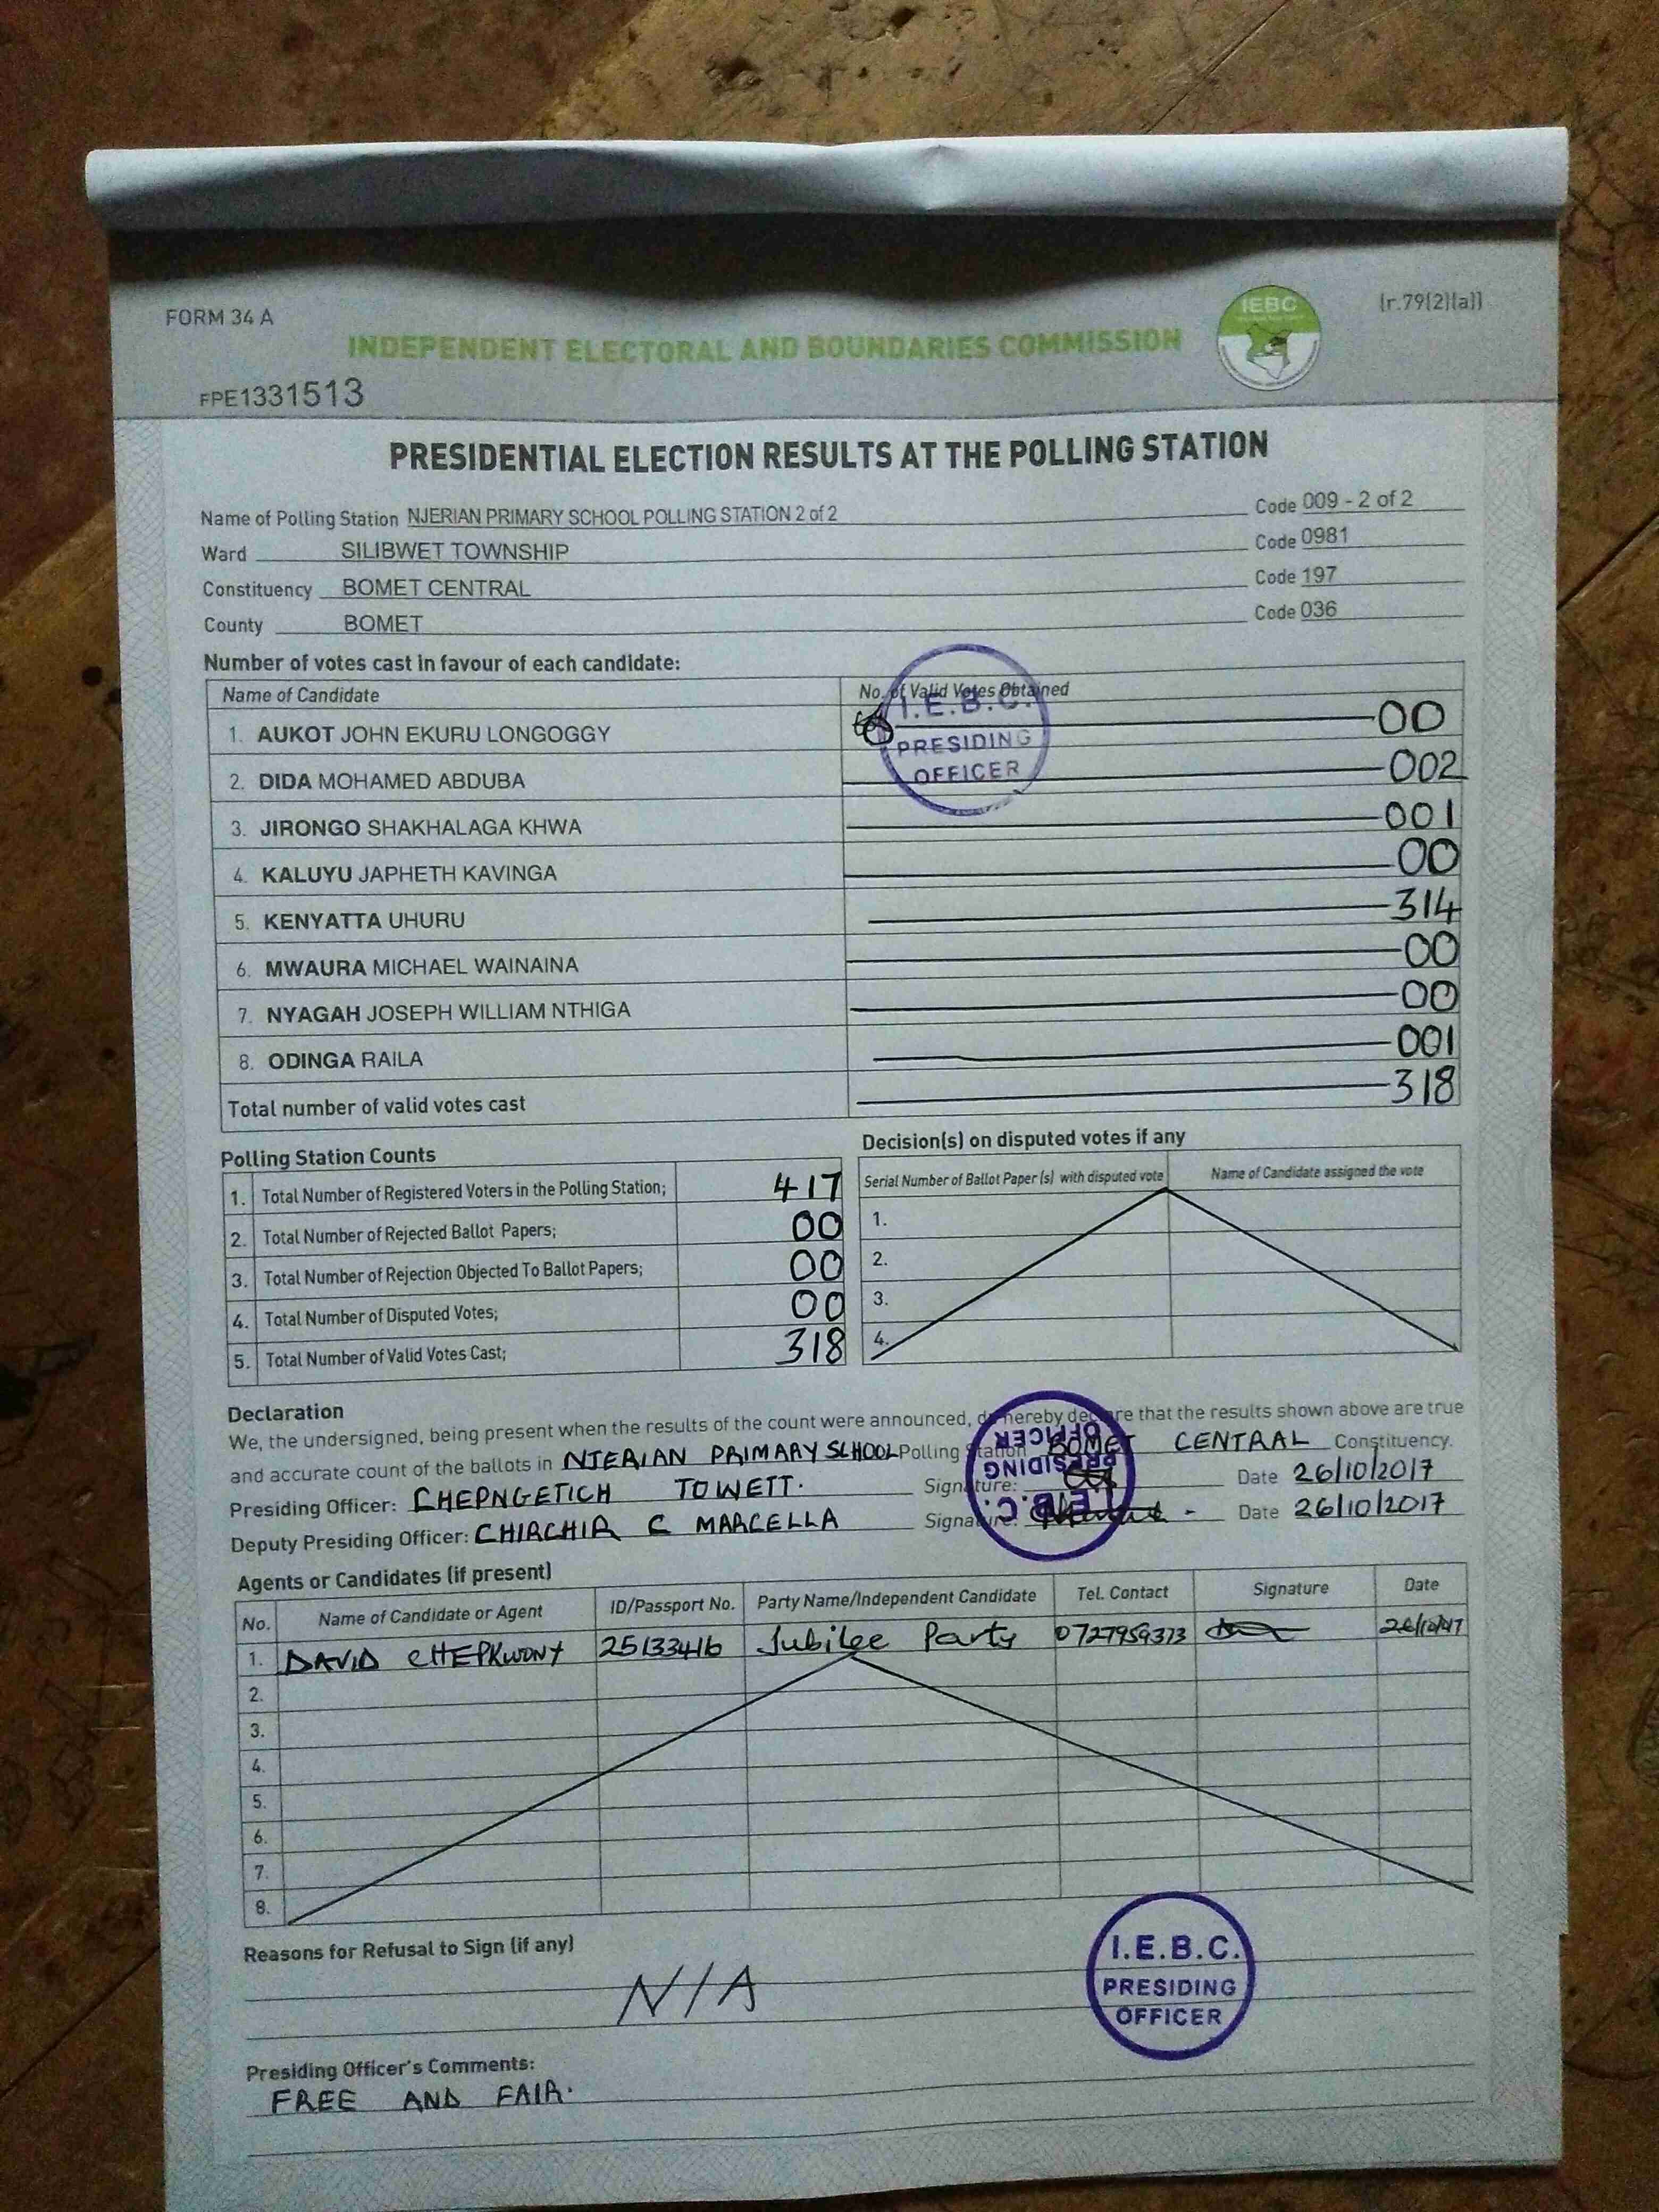 FORM 34 A
[r.79(2)(a)]
IEBC
INDEPENDENT ELECTORAL AND BOUNDARIES COMMISSION
FPE1331513
PRESIDENTIAL ELECTION RESULTS AT THE POLLING STATION
Name of Polling Station NJERIAN PRIMARY SCHOOL POLLING STATION 2 of 2 Code 009 - 2 of 2
Ward SILIBWET TOWNSHIP Code 0981
Constituency BOMET CENTRAL Code 197
County BOMET Code 036
Number of votes cast in favour of each candidate:
Name of Candidate No. of Valid Votes Obtained
1. AUKOT JOHN EKURU LONGOGGY 00
2. DIDA MOHAMED ABDUBA 002
3. JIRONGO SHAKHALAGA KHWA 001
4. KALUYU JAPHETH KAVINGA 00
5. KENYATTA UHURU 314
6. MWAURA MICHAEL WAINAINA 00
7. NYAGAH JOSEPH WILLIAM NTHIGA 00
8. ODINGA RAILA 001
Total number of valid votes cast 318
I.E.B.C.
PRESIDING
OFFICER
Polling Station Counts
1. Total Number of Registered Voters in the Polling Station; 417
2. Total Number of Rejected Ballot Papers; 00
3. Total Number of Rejection Objected To Ballot Papers; 00
4. Total Number of Disputed Votes; 00
5. Total Number of Valid Votes Cast; 318
Decision(s) on disputed votes if any
Serial Number of Ballot Paper (s) with disputed vote Name of Candidate assigned the vote
1.
2.
3.
4.
Declaration
We, the undersigned, being present when the results of the count were announced, do hereby declare that the results shown above are true
and accurate count of the ballots in NJERIAN PRIMARY SCHOOL Polling Station BOMET CENTRAL Constituency.
Presiding Officer: CHEPNGETICH TOWETT. Signature: Date 26/10/2017
Deputy Presiding Officer: CHIRCHIR C MARCELLA Signature: Date 26/10/2017
I.E.B.C.
PRESIDING
OFFICER
Agents or Candidates (if present)
No. Name of Candidate or Agent ID/Passport No. Party Name/Independent Candidate Tel. Contact Signature Date
1. DAVID CHEPKWONY 25133416 Jubilee Party 0727959373 26/10/17
2.
3.
4.
5.
6.
7.
8.
Reasons for Refusal to Sign (if any)
N/A
I.E.B.C.
PRESIDING
OFFICER
Presiding Officer's Comments:
FREE AND FAIR.